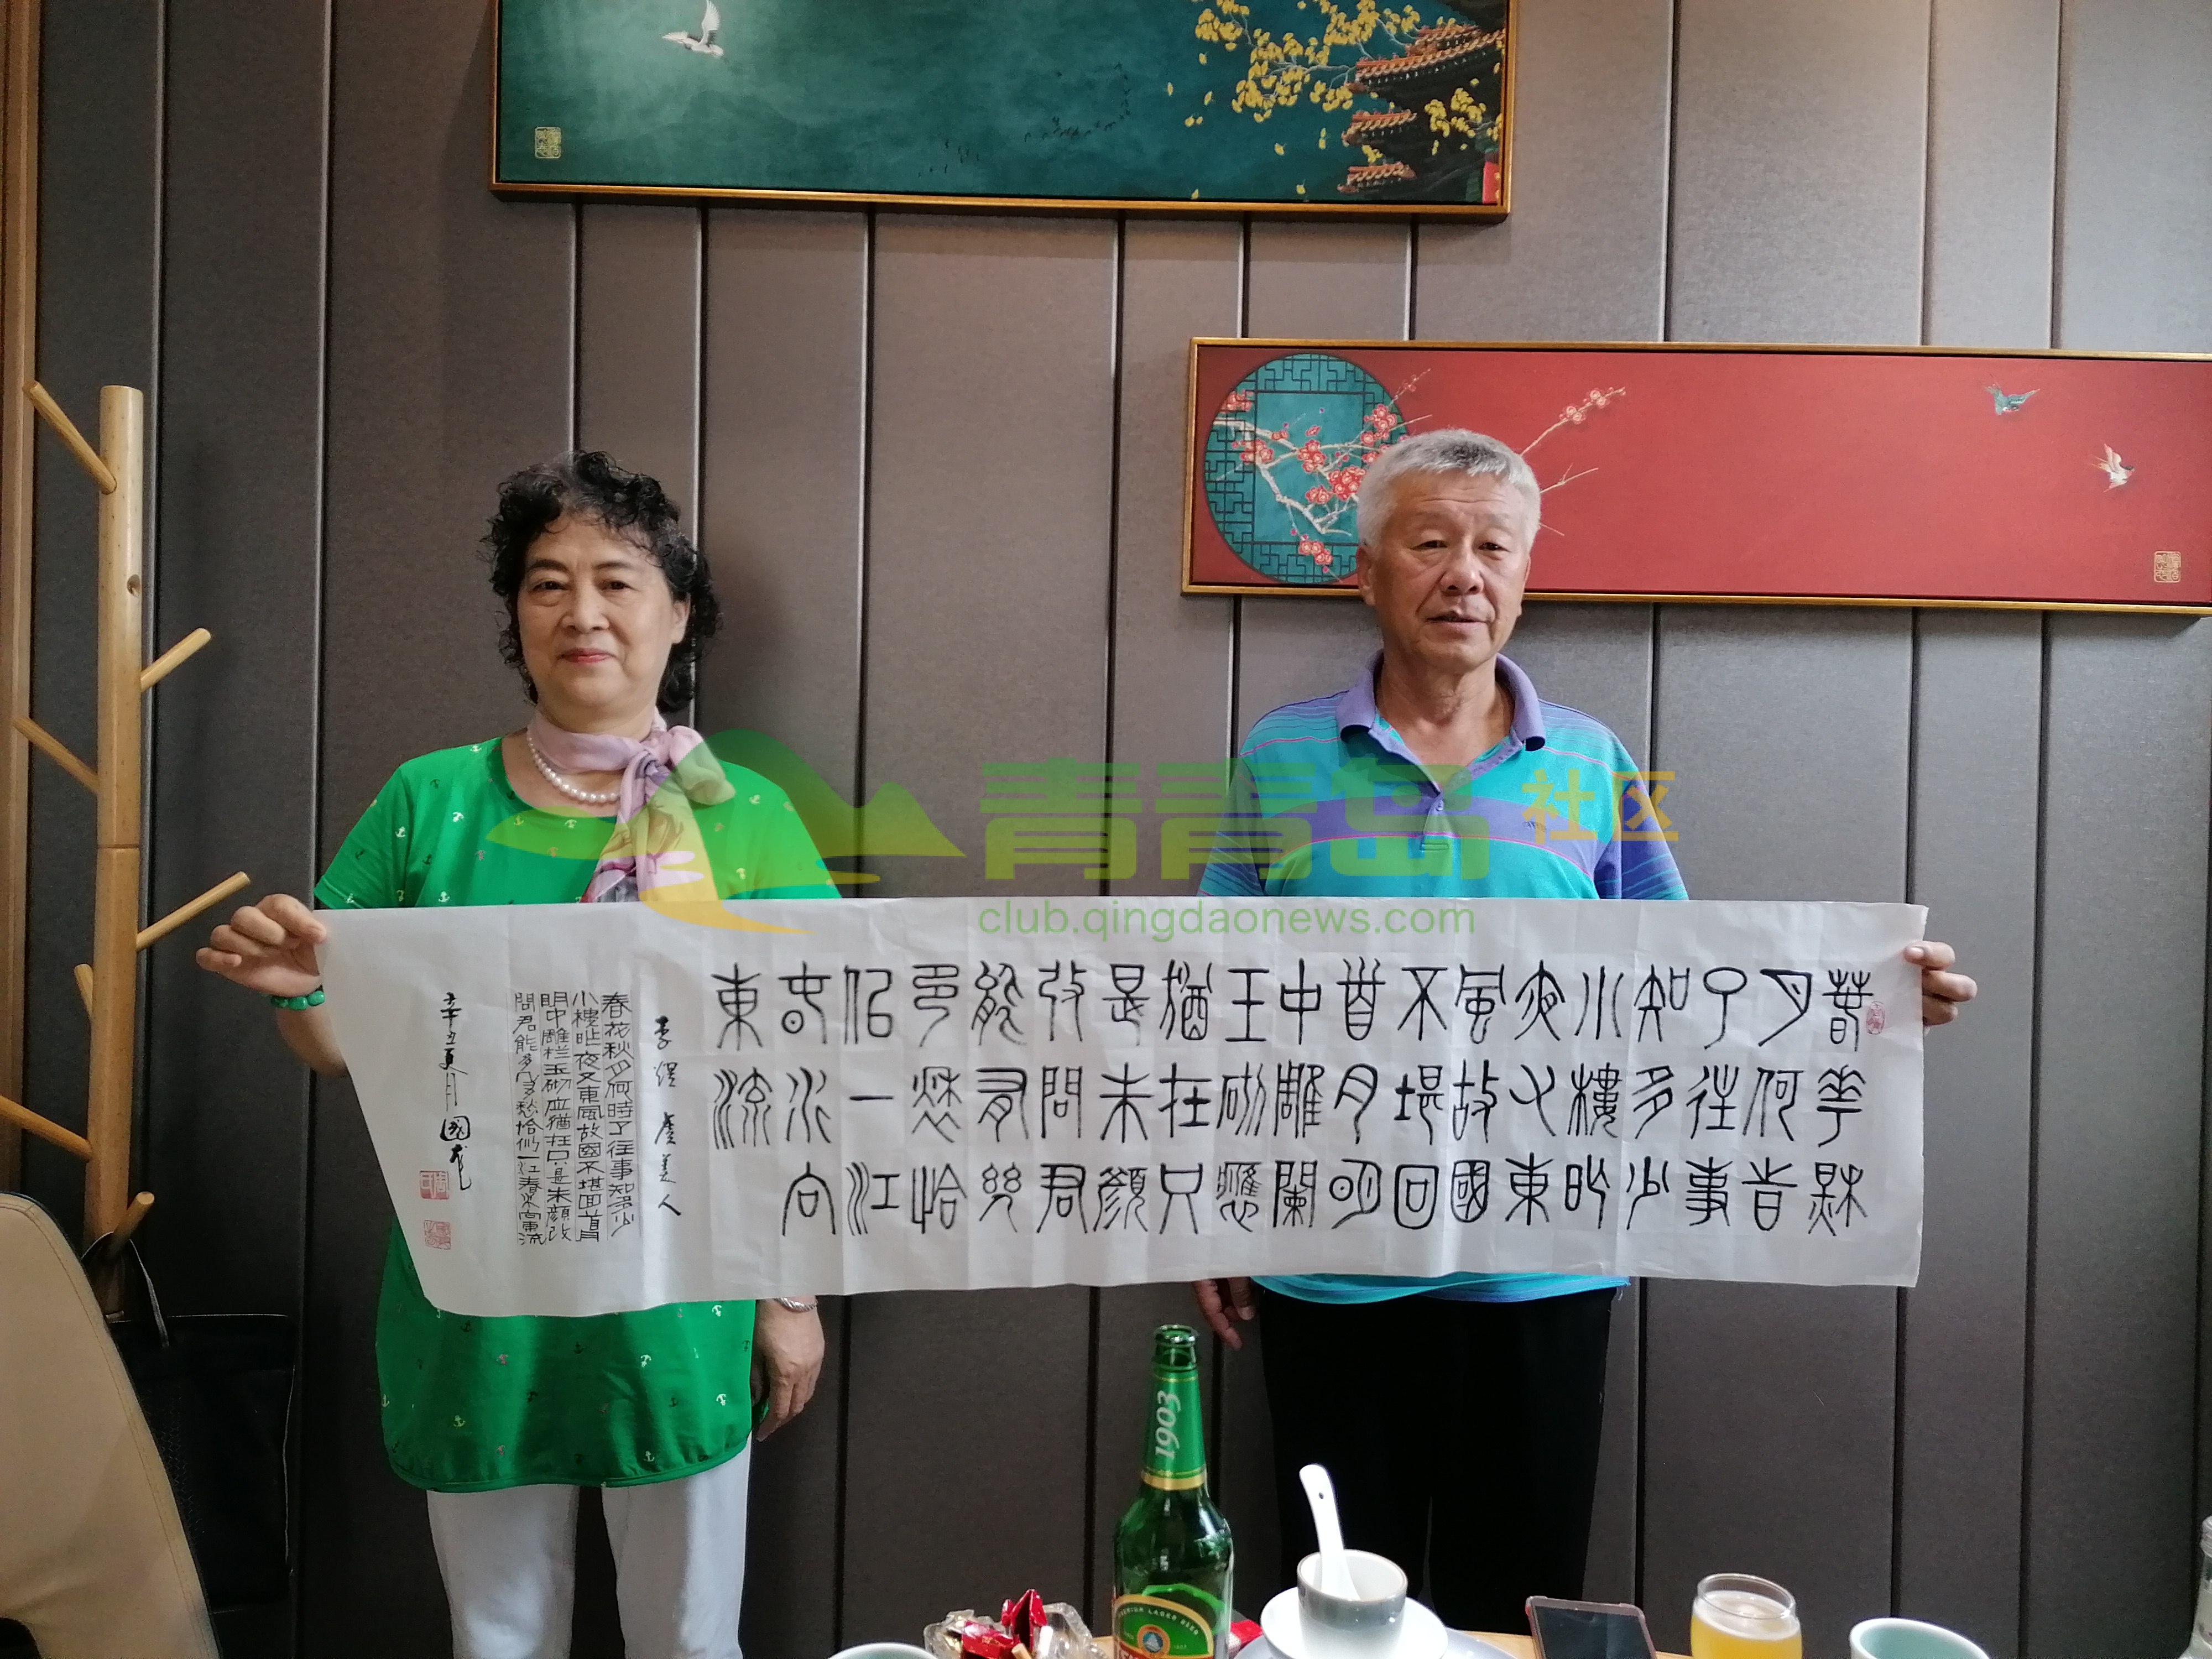 春華秋
月何旹
了往事
知多少
小樓昨
夜又東
風故國
不堪回
首月明
中雕闌
玉砌應
猶在只
是朱顏
改問君
能有幾
多愁恰
佀一江
春水向
東流
李煜 虞美人
春花秋月何時了往事知多少
小樓昨夜又東風故國不堪回首月
明中雕栏玉砌应猶在只是朱顔改
問君能有几多愁恰似一江春水向東流
辛丑夏月國
青青岛社区
club.qingdaonews.com
1903